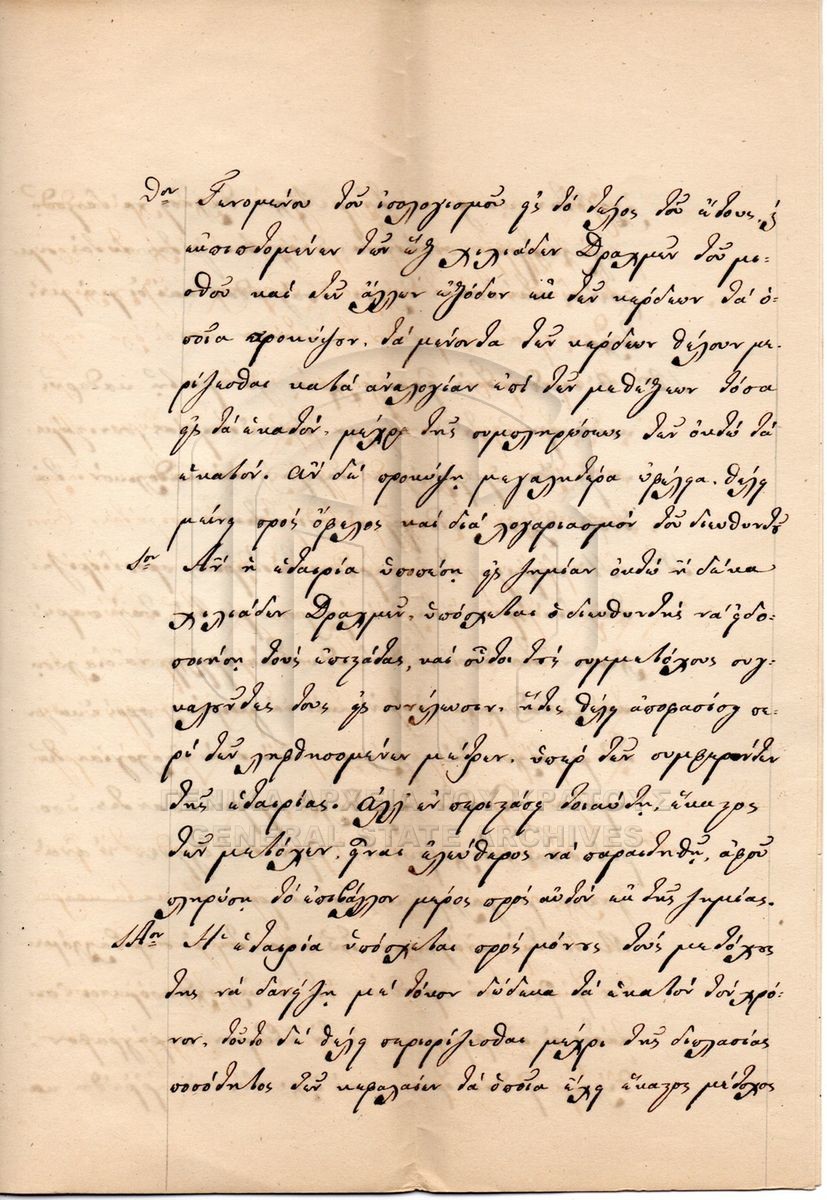 9ον Γενομένου τοῦ ἰσολογισμοῦ εἰς τὸ τέλος τοῦ ἔτους,
ἐκπιπτομένων τῶν ἓξ χιλιάδων Δραχμῶν τοῦ μι-
σθοῦ καὶ τῶν ἄλλων ἐξόδων ἐκ τῶν κερδῶν τὰ ὁ-
ποῖα προκύψουν, τὰ μένοντα τῶν κερδῶν θέλουν με-
ρίζεσθαι κατὰ ἀναλογίαν ἐπὶ τῶν μεθέξεων τόσα
εἰς τὰ ἑκατὸν, μέχρι τῆς συμπληρώσεως τῶν ὀκτὼ τὰ
ἑκατόν. ἂν δὲ προκύψῃ μεγαλητέρα ὠφέλεια, θέλει
μείνει πρὸς ὄφελος καὶ διὰ λογαριασμὸν τοῦ διευθυντοῦ
10ον Ἂν ἡ ἑταιρία ὑποπέσῃ εἰς ζημίαν ὀκτὼ ἢ δέκα
χιλιάδων Δραχμῶν, ὑπόσχεται ὁ διευθυντὴς νὰ εἰδο-
ποιήσῃ τοὺς ἐπιστάτας, καὶ οὗτοι τοὺς συμμετόχους συγ-
καλοῦντες τους εἰς συνέλευσιν, ἥτις θέλει ἀποφασίσει πε-
ρὶ τῶν ληφθησομένων μέτρων, ὑπὲρ τῶν συμφερόντων
τῆς ἑταιρίας. ἀλλ' ἐν περιστάσει τοιαύτῃ, ἕκαστος
τῶν μετόχων, εἶναι ἐλεύθερος νὰ παραιτηθῇ, ἀφοῦ
πληρώσῃ τὸ ἐπιβάλλον μέρος πρὸς αὐτὸν ἐκ τῆς ζημίας.
11ον Ἡ ἑταιρία ὑπόσχεται πρὸς μόνους τοὺς μετόχους
της νὰ δανείζῃ μὲ τόκον δώδεκα τὰ ἑκατὸν τὸν χρό-
νον, τοῦτο δὲ θέλει περιορίζεσθαι μέχρι τῆς διπλασίας
ποσότητος τῶν κεφαλαίων τὰ ὁποῖα ἔχει ἕκαστος μέτοχος
ΓΕΝΙΚΑ ΑΡΧΕΙΑ ΤΟΥ ΚΡΑΤΟΥΣ
GENERAL STATE ARCHIVES